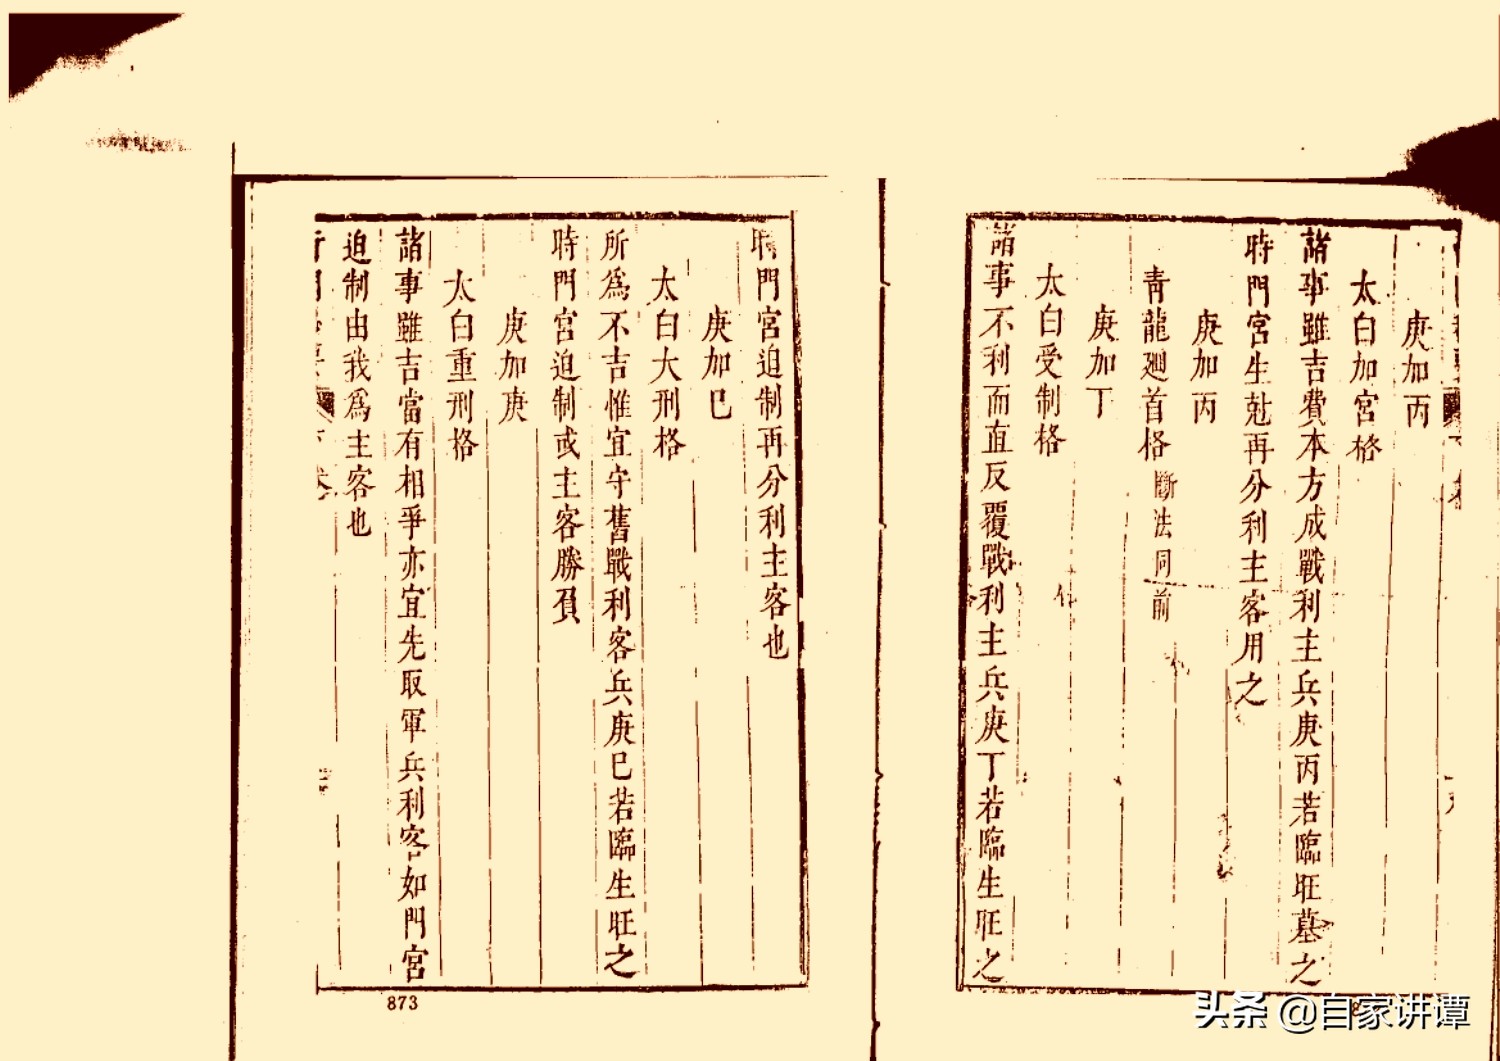 庚加丙
太白加宮格
諸事雖吉費本方成戰利主兵庚丙若臨旺墓之
時門宮生尅再分利主客用之
庚加丙
青龍廻首格斷法同前
庚加丁
太白受制格
諸事不利而直反覆戰利主兵庚丁若臨生旺之
時門宮迫制再分利主客也
庚加巳
太白大刑格
所爲不吉惟宜守舊戰利客兵庚巳若臨生旺之
時門宮迫制或主客勝負
庚加庚
太白重刑格
諸事雖吉當有相爭亦宜先取軍兵利客如門宮
迫制由我爲主客也
873
头条 @自家讲谭